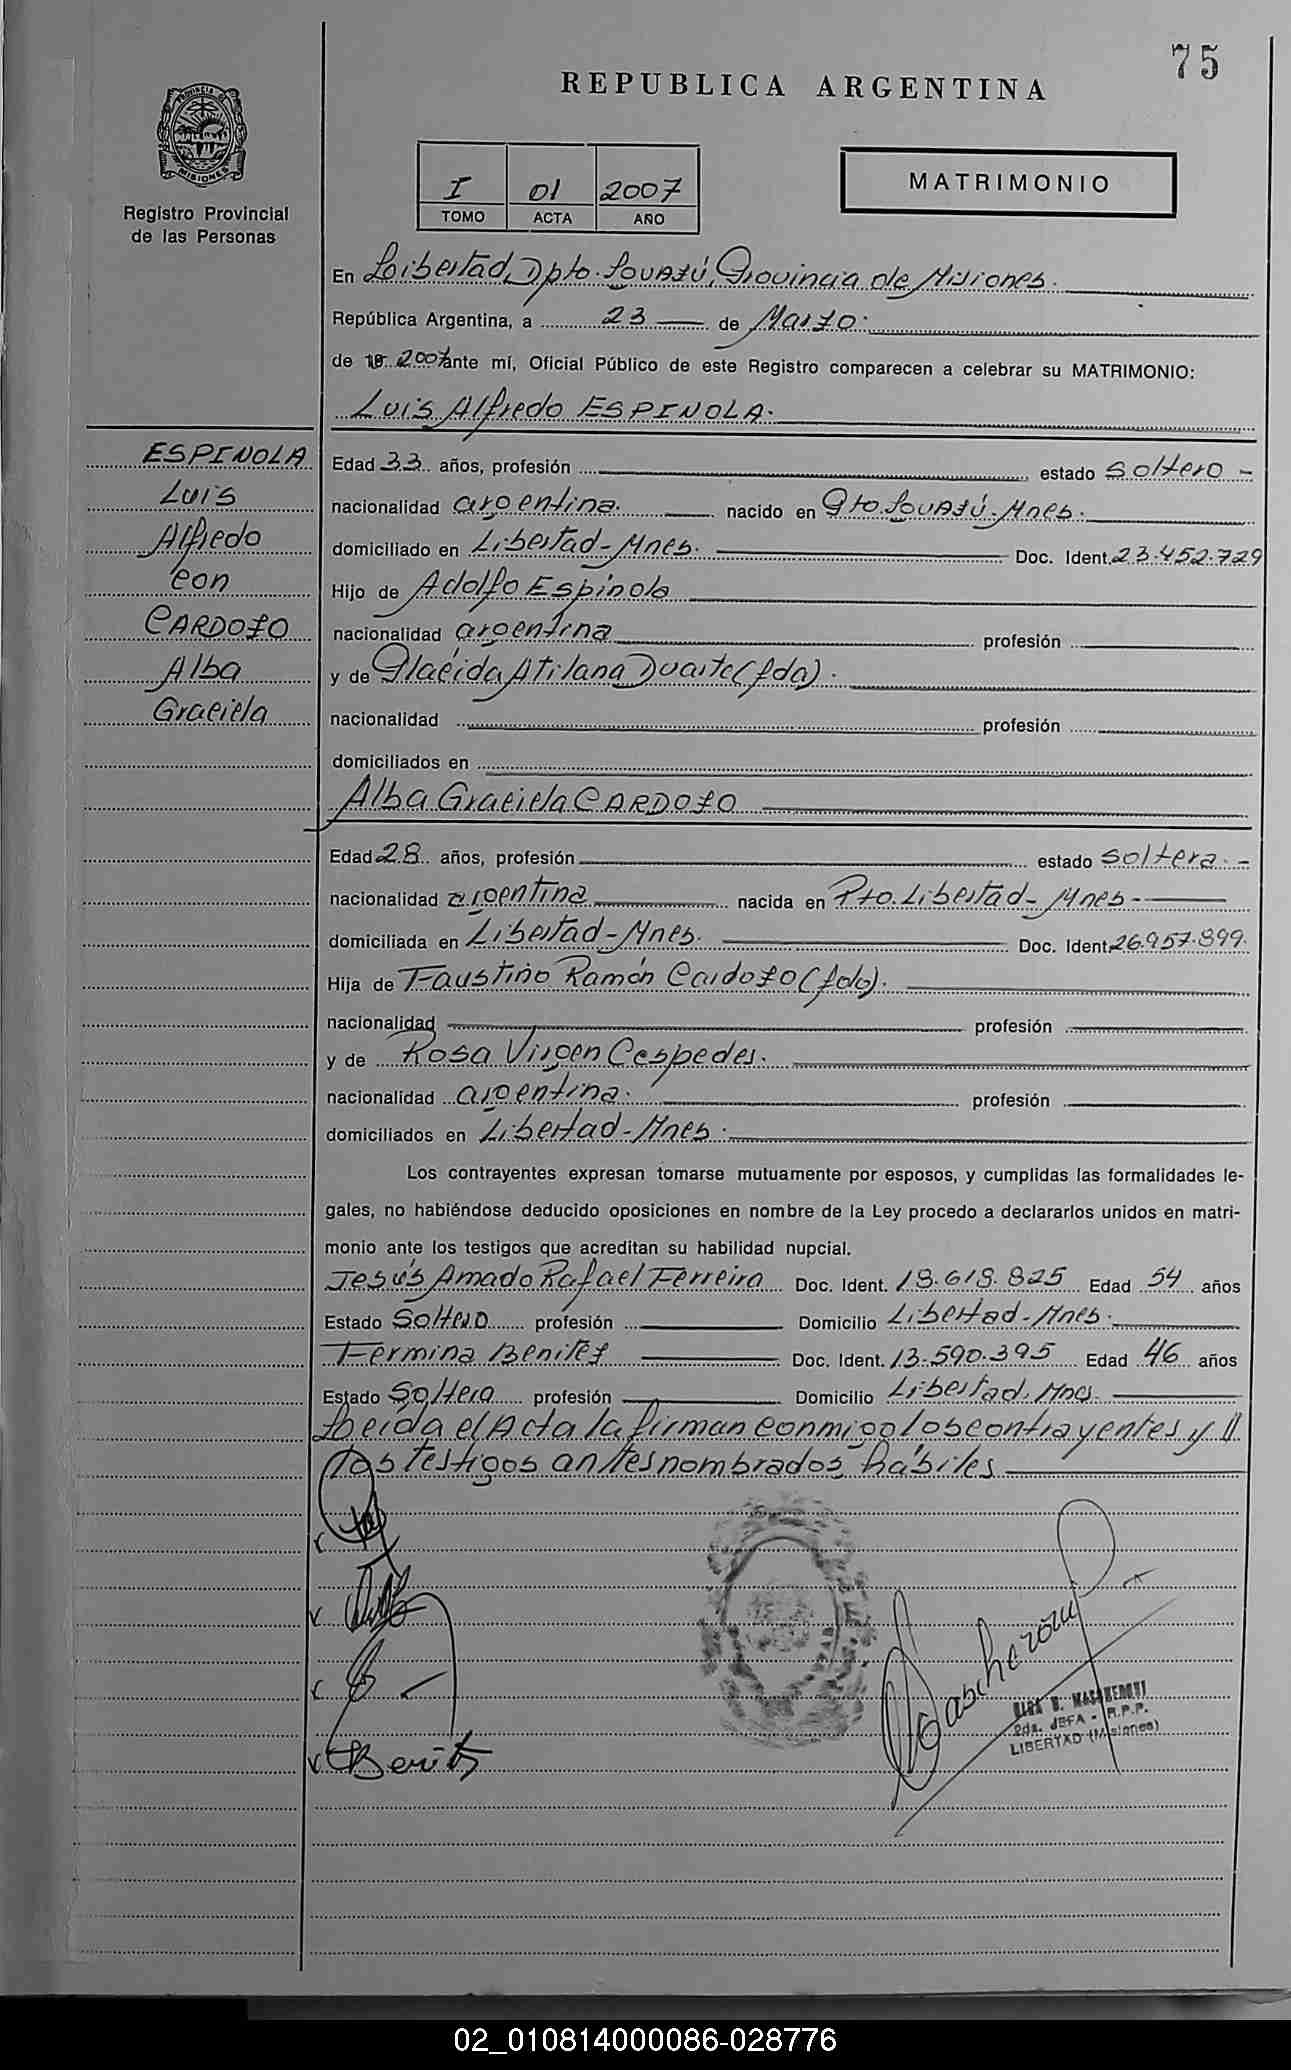 75
REPUBLICA ARGENTINA
PROVINCIA DE MISIONES
Registro Provincial
de las Personas
I 01 2007
TOMO ACTA AÑO
MATRIMONIO
En Libertad, Dpto. IGUAZÚ, Provincia de Misiones.
República Argentina, a 23 de Marzo.
de 19 2007 ante mí, Oficial Público de este Registro comparecen a celebrar su MATRIMONIO:
Luis Alfredo ESPINOLA.
ESPINOLA
Luis
Alfredo
con
CARDOZO
Alba
Graciela
Edad 33 años, profesión estado soltero -
nacionalidad argentina. nacido en Pto. IGUAZÚ - Mnes.
domiciliado en Libertad - Mnes. Doc. Ident. 23.452.729
Hijo de Adolfo Espínola
nacionalidad argentina profesión
y de Placida Atilana Duarte (fda).
nacionalidad profesión
domiciliados en
Alba Graciela CARDOZO
Edad 28 años, profesión estado soltera. -
nacionalidad argentina nacida en Pto. Libertad - Mnes -
domiciliada en Libertad - Mnes. Doc. Ident. 26.957.899.
Hija de Faustino Ramón Cardozo (fdo).
nacionalidad profesión
y de Rosa Virgen Cespedes.
nacionalidad argentina. profesión
domiciliados en Libertad - Mnes.
Los contrayentes expresan tomarse mutuamente por esposos, y cumplidas las formalidades le-
gales, no habiéndose deducido oposiciones en nombre de la Ley procedo a declararlos unidos en matri-
monio ante los testigos que acreditan su habilidad nupcial.
Jesús Amado Rafael Ferreira Doc. Ident. 18.618.825 Edad 54 años
Estado Soltero profesión Domicilio Libertad - Mnes.
Fermina Benitez Doc. Ident. 13.590.395 Edad 46 años
Estado Soltera profesión Domicilio Libertad. Mnes.
Leída el Acta la firman conmigo los contrayentes y
los testigos antes nombrados, hábiles
Benitz
Mascheroni
MASCHERONI
JEFA - R.P.P.
LIBERTAD (Misiones)
02_010814000086-028776